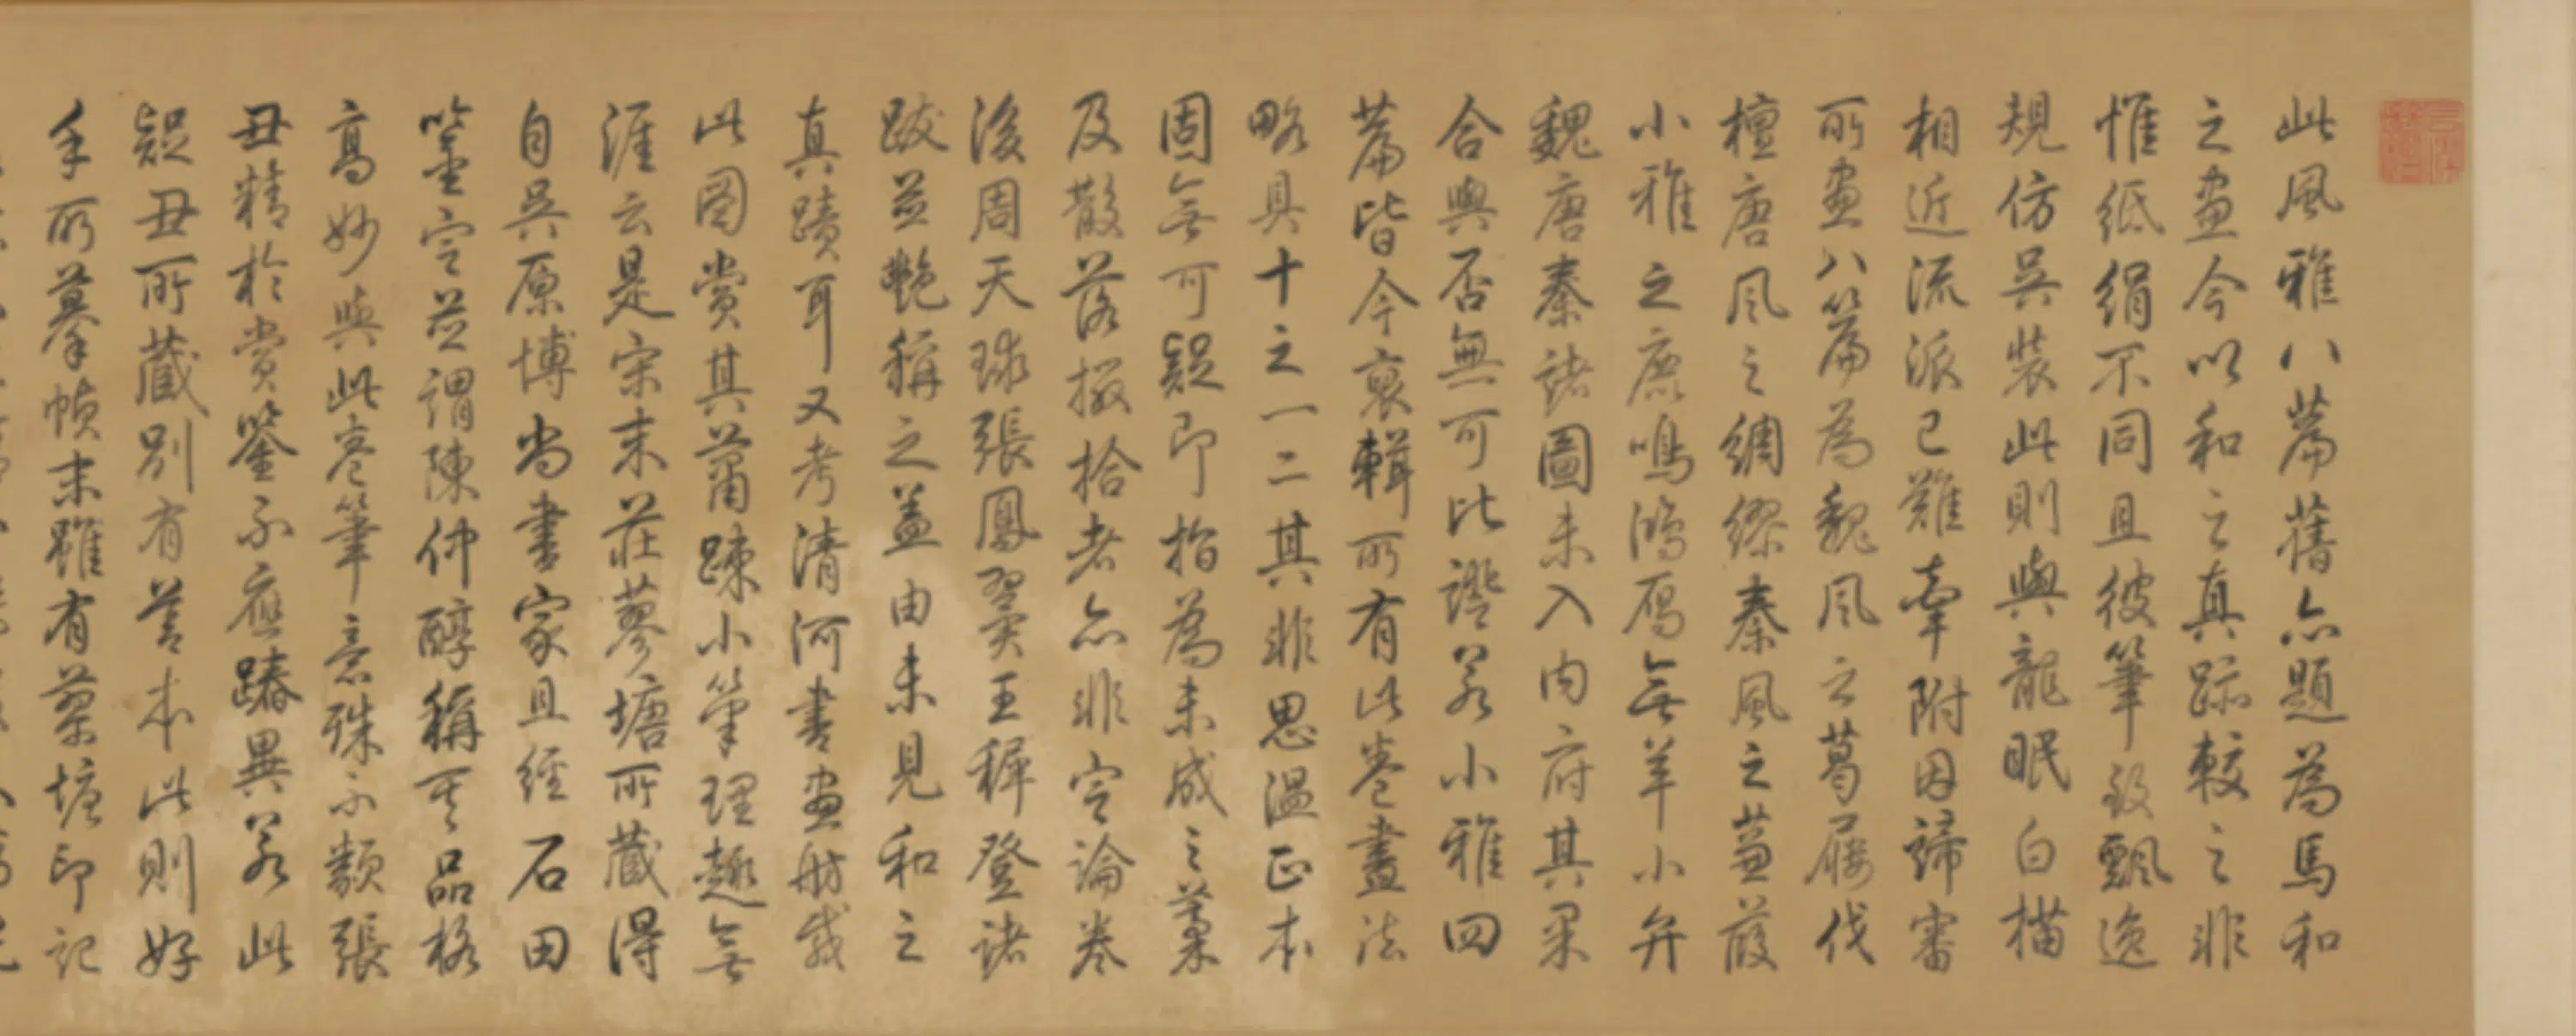 此風雅八篇舊亦題為馬和
之畫今以和之真跡較之非
惟紙絹不同且彼筆致飄逸
規仿吳裝此則與龍眠白描
相近流派已難牽附因諦審
所畫八篇為魏風之葛屨伐
檀唐風之綢繆秦風之蒹葭
小雅之鹿鳴鴻雁無羊小弁
魏唐秦諸圖未入內府其果
合與否無可比證若小雅四
篇皆今裒輯所有此卷畫法
略具十之一二其非思溫正本
固無可疑即指為未成之藁
及散落掇拾者亦非定論卷
後周天球張鳳翼王穉登諸
跋並艷稱之蓋由未見和之
真蹟耳又考清河書畫舫載
此圖賞其蕭疎小筆理趣無
涯云是宋末莊蓼塘所藏得
自吳原博尚書家且經石田
鑒定並謂陳仲醇稱其品格
高妙與此卷筆意殊不類張
丑精於賞鑒不應踳異若此
疑丑所藏別有善本此則好
手所摹幀末雖有蓼塘印記